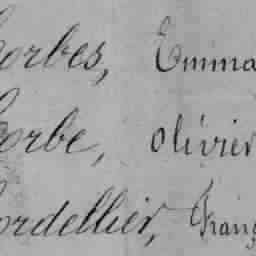 Corbes, Emma
Corbe, Olivier
Cordellier, Franç